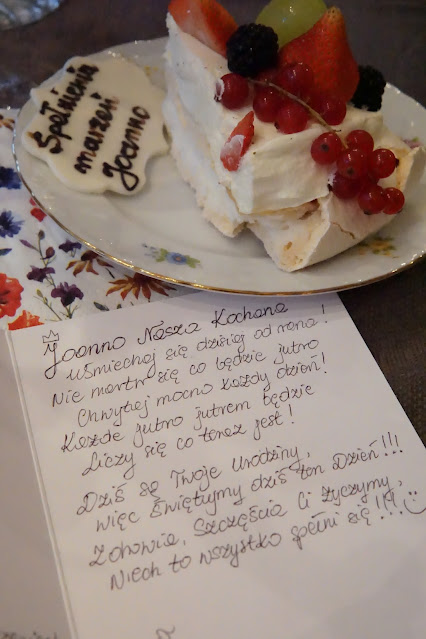 Spełnienia
marzeń
Joanno
Joanno Nasza Kochana
Uśmiechaj się dzisiaj od rana!
Nie martw się co będzie jutro
Chwytaj mocno każdy dzień!
Każde jutro jutrem będzie
Liczy się co teraz jest!
Dziś są Twoje Urodziny,
więc świętujmy dziś ten Dzień!!!
Zdrowia, Szczęścia Ci życzymy,
Niech to wszystko spełni się!!!